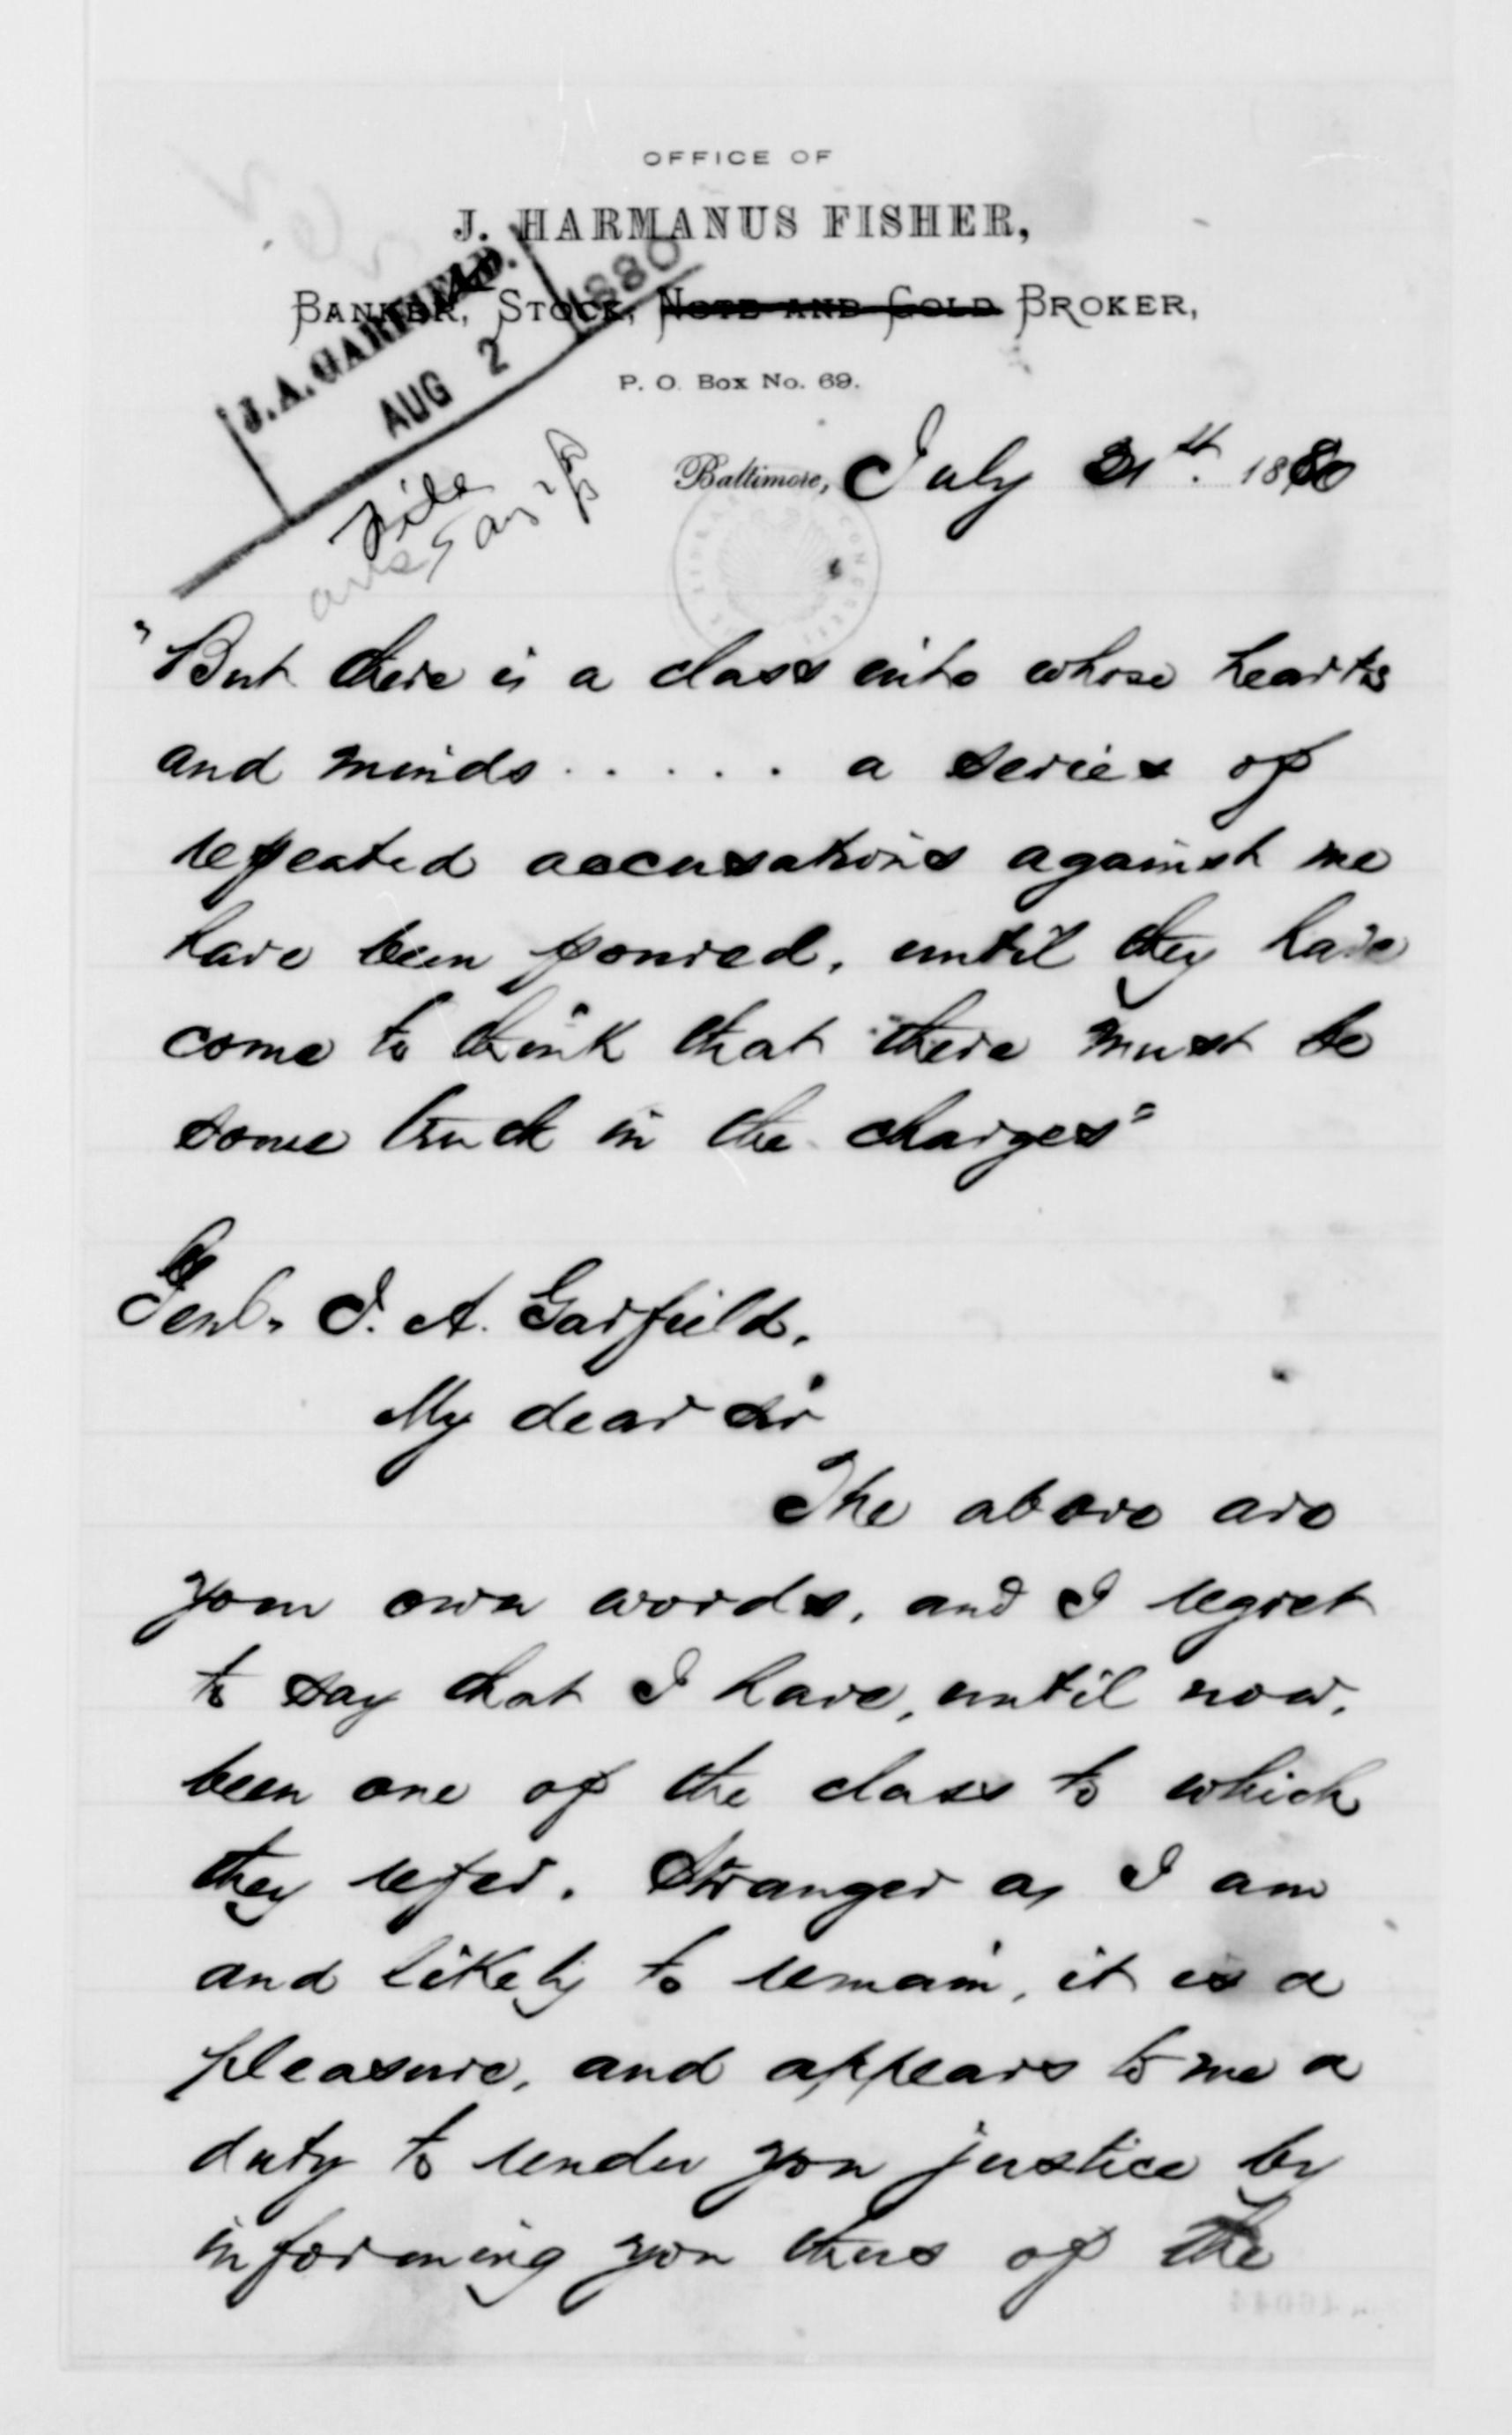 OFFICE OF
J. HARMANUS FISHER,
BANKER, STOCK, NOTE AND GOLD BROKER,
P. O. Box No. 69.
J. A. GARFIELD.
AUG 2 1880
File
Baltimore, July 31st. 1880
"But there is a class into whose hearts
and minds . . . . . a series of
repeated accusations against me
have been poured, until they have
come to think that there must be
some truth in the charges"
Genl. J. A. Garfield.
My dear Sir
The above are
your own words, and I regret
to say that I have, until now,
been one of the class to which
they refer. Stranger as I am
and likely to remain, it is a
pleasure, and appears to me a
duty to render you justice by
informing you thus of the